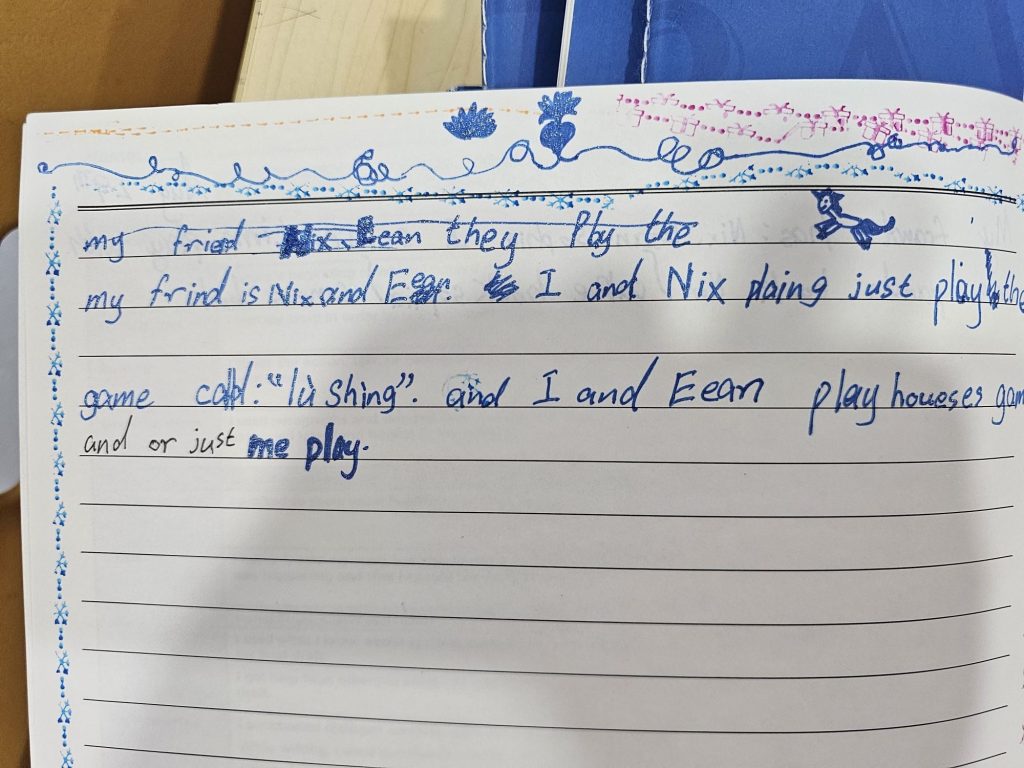 my fried Nix, Eean they Play the
my frind is Nix and Eean. I and Nix plaing just play the
game call: "lù shing". and I and Eean play houeses gam
and or just me play.